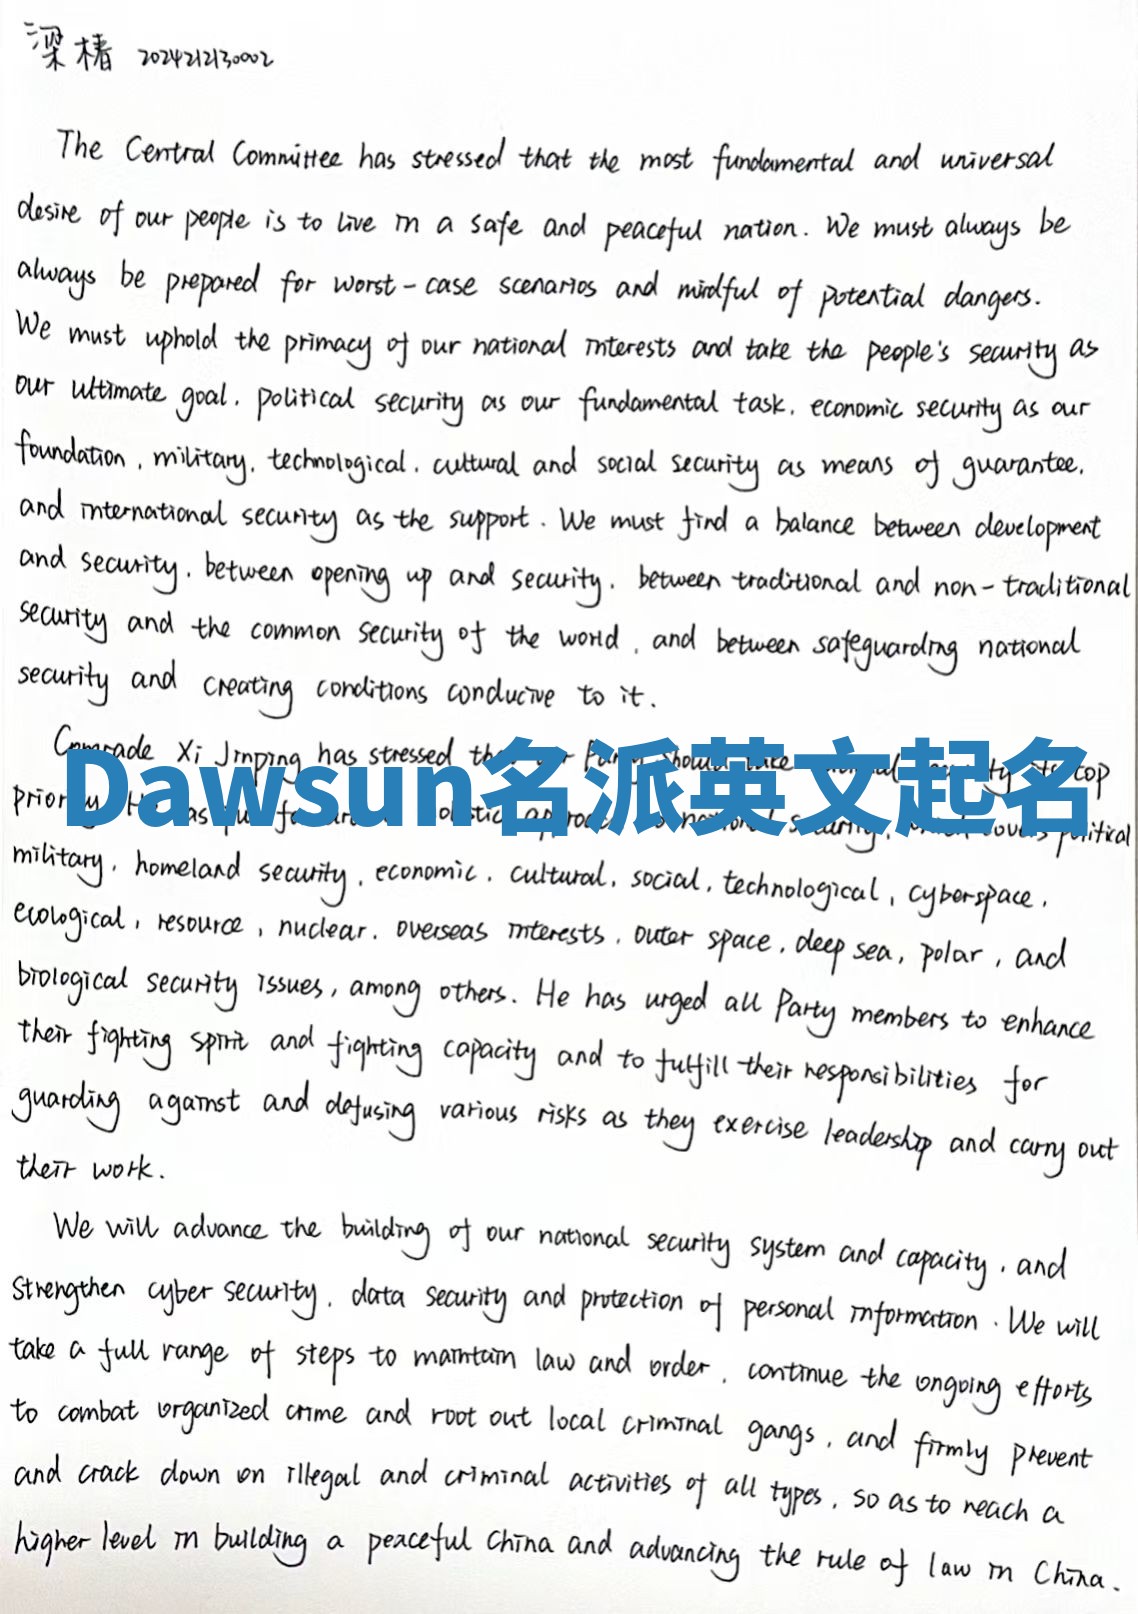 梁椿 2024212130002
The Central Committee has stressed that the most fundamental and universal
desire of our people is to live in a safe and peaceful nation. We must always be
always be prepared for worst-case scenarios and mindful of potential dangers.
We must uphold the primacy of our national interests and take the people's security as
our ultimate goal, political security as our fundamental task, economic security as our
foundation, military, technological, cultural and social security as means of guarantee,
and international security as the support. We must find a balance between development
and security, between opening up and security, between traditional and non-traditional
security and the common security of the world, and between safeguarding national
security and creating conditions conducive to it.
Comrade Xi Jinping has stressed Party should top
Dawsun名派英文起名
political
military, homeland security, economic, cultural, social, technological, cyberspace,
ecological, resource, nuclear, overseas interests, outer space, deep sea, polar, and
biological security issues, among others. He has urged all Party members to enhance
their fighting spirit and fighting capacity and to fulfill their responsibilities for
guarding against and defusing various risks as they exercise leadership and carry out
their work.
We will advance the building of our national security system and capacity, and
strengthen cyber security, data security and protection of personal information. We will
take a full range of steps to maintain law and order, continue the ongoing efforts
to combat organized crime and root out local criminal gangs, and firmly prevent
and crack down on illegal and criminal activities of all types, so as to reach a
higher level in building a peaceful China and advancing the rule of law in China.